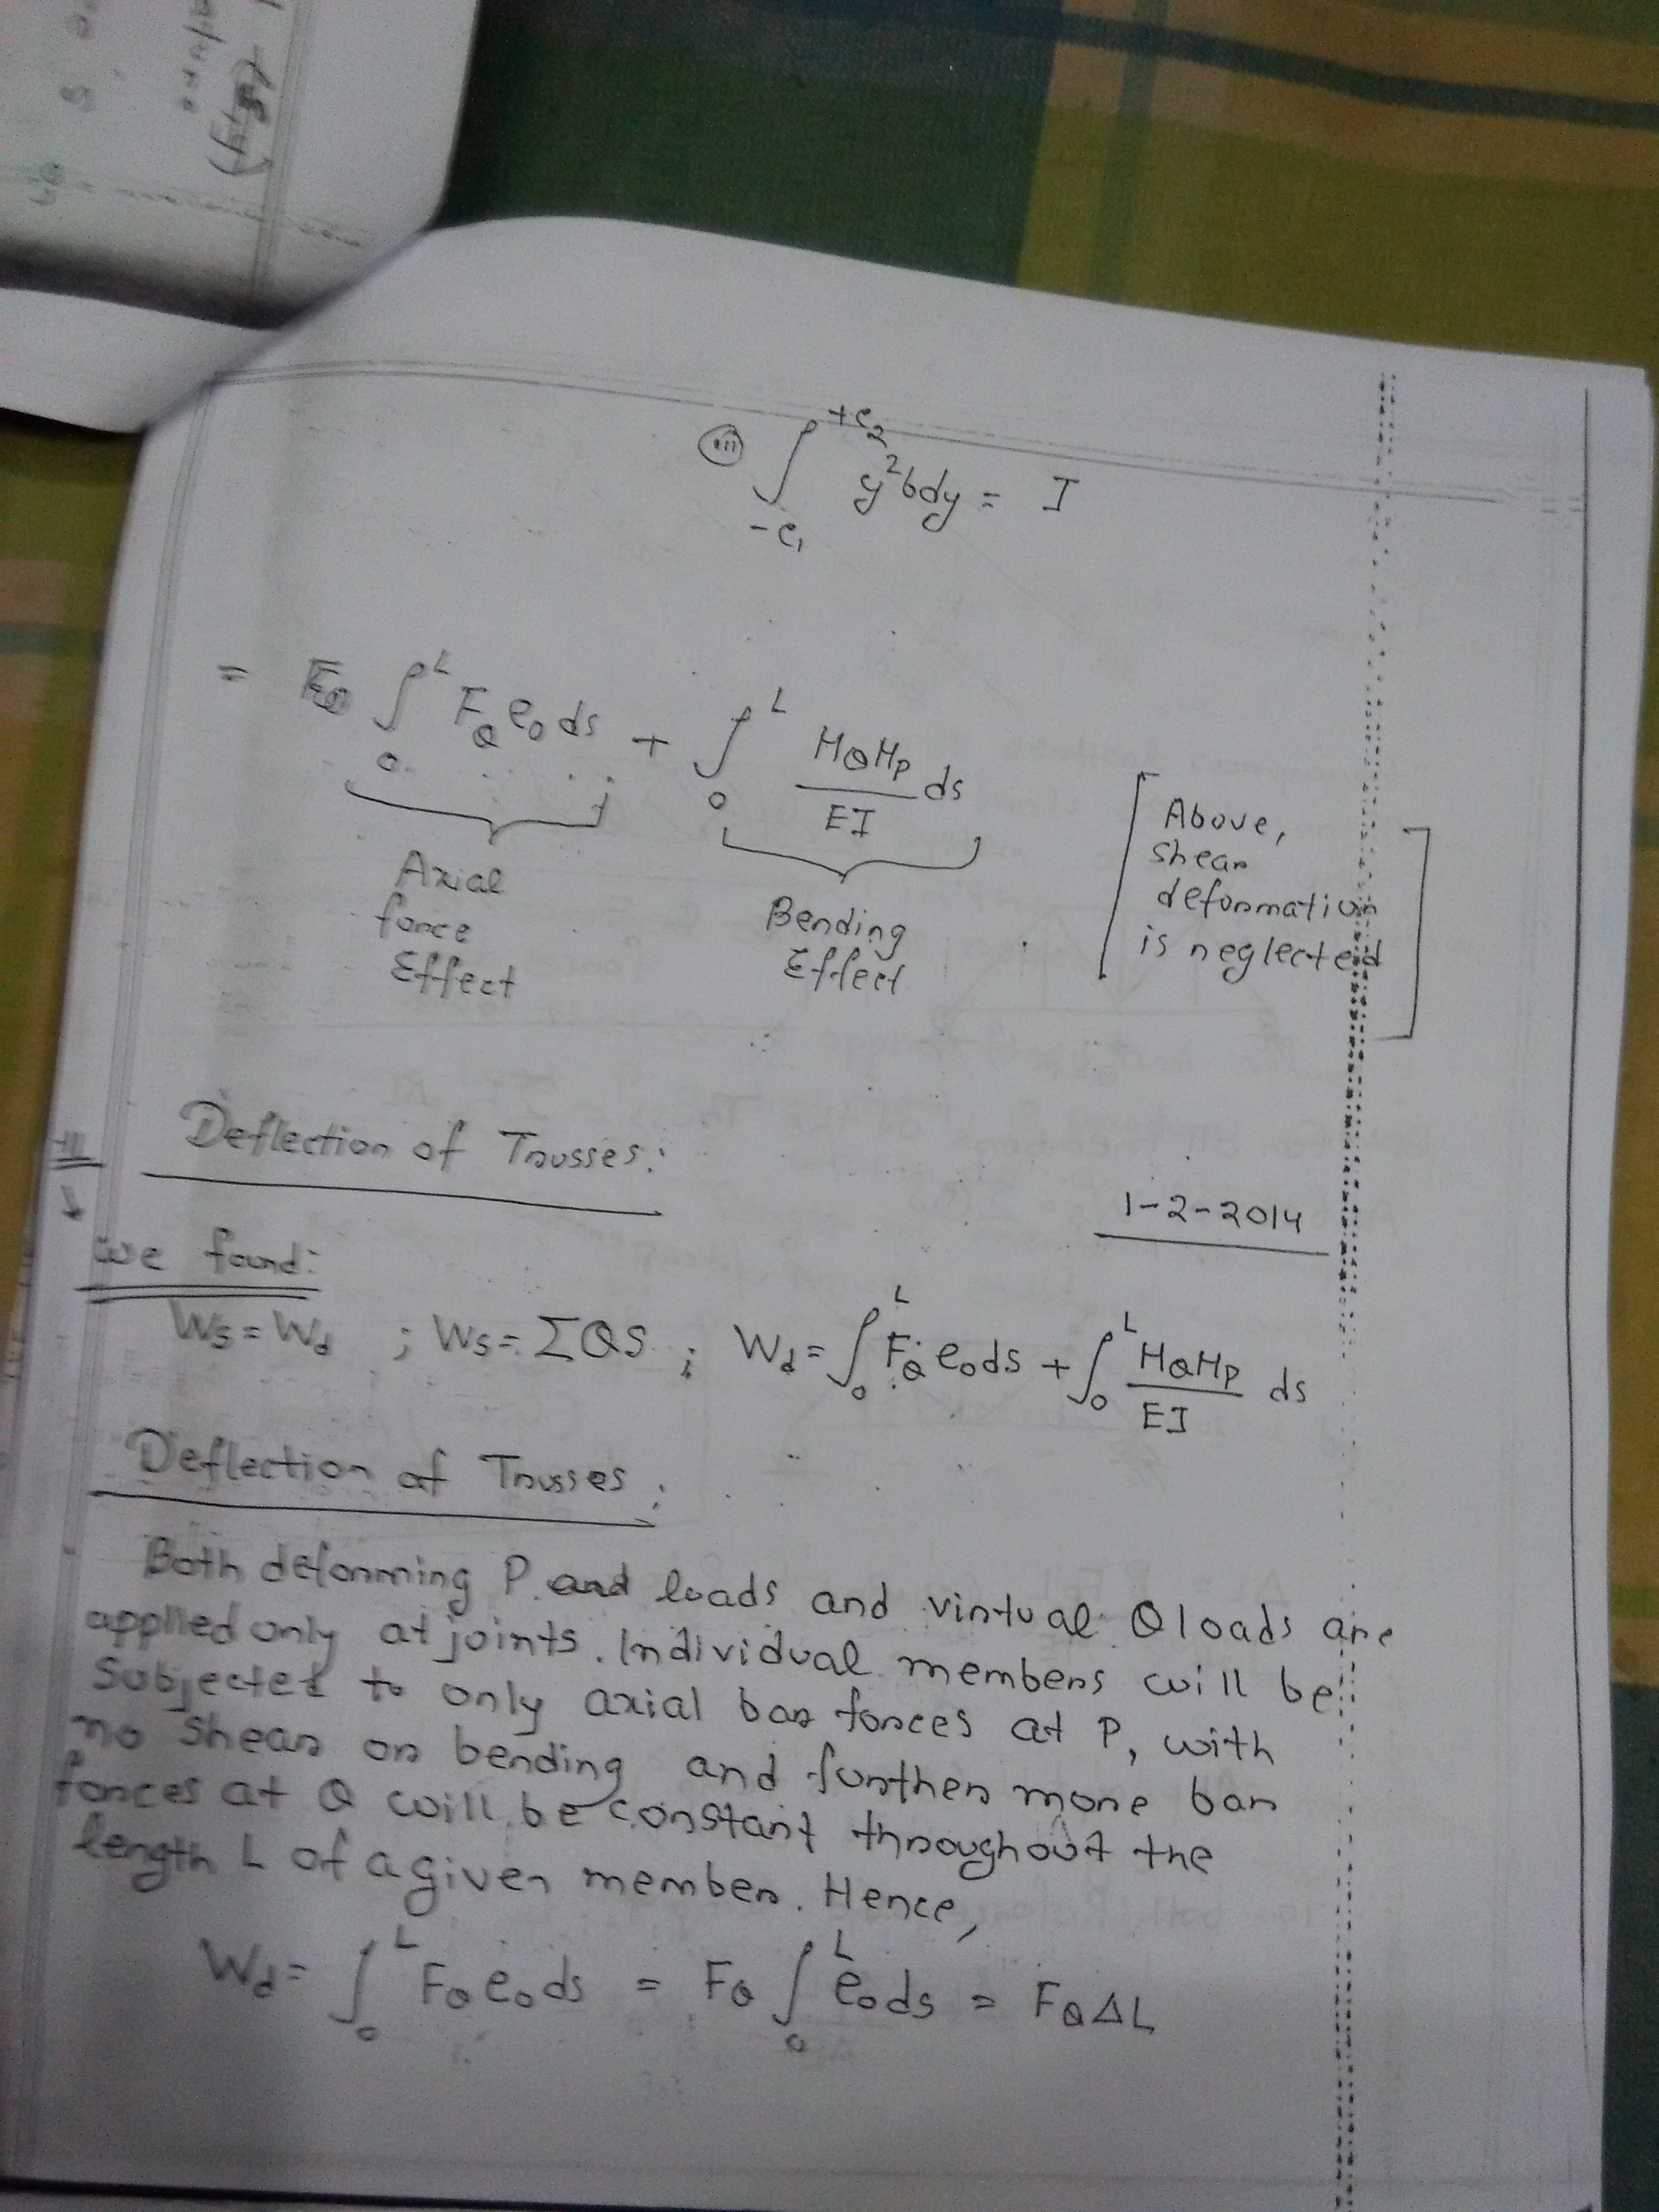 (iii) ∫_{-c₁}^{+c₂} y²bdy = I
= ∫₀^L F_Q e₀ ds + ∫₀^L M_Q M_P / EI ds
Axial
force
Effect
Bending
Effect
[Above,
shear
deformation
is neglected]
Deflection of Trusses:
1-2-2014
We found:
Ws = Wd ; Ws = ΣQδ ; Wd = ∫₀^L F_Q e₀ ds + ∫₀^L M_Q M_P / EI ds
Deflection of Trusses:
Both deforming P loads and virtual Q loads are
applied only at joints. Individual members will be
subjected to only axial bar forces at P, with
no shear or bending and further more bar
forces at Q will be constant throughout the
length L of a given member. Hence,
Wd = ∫₀^L F_Q e₀ ds = F_Q ∫₀^L e₀ ds = F_Q ΔL